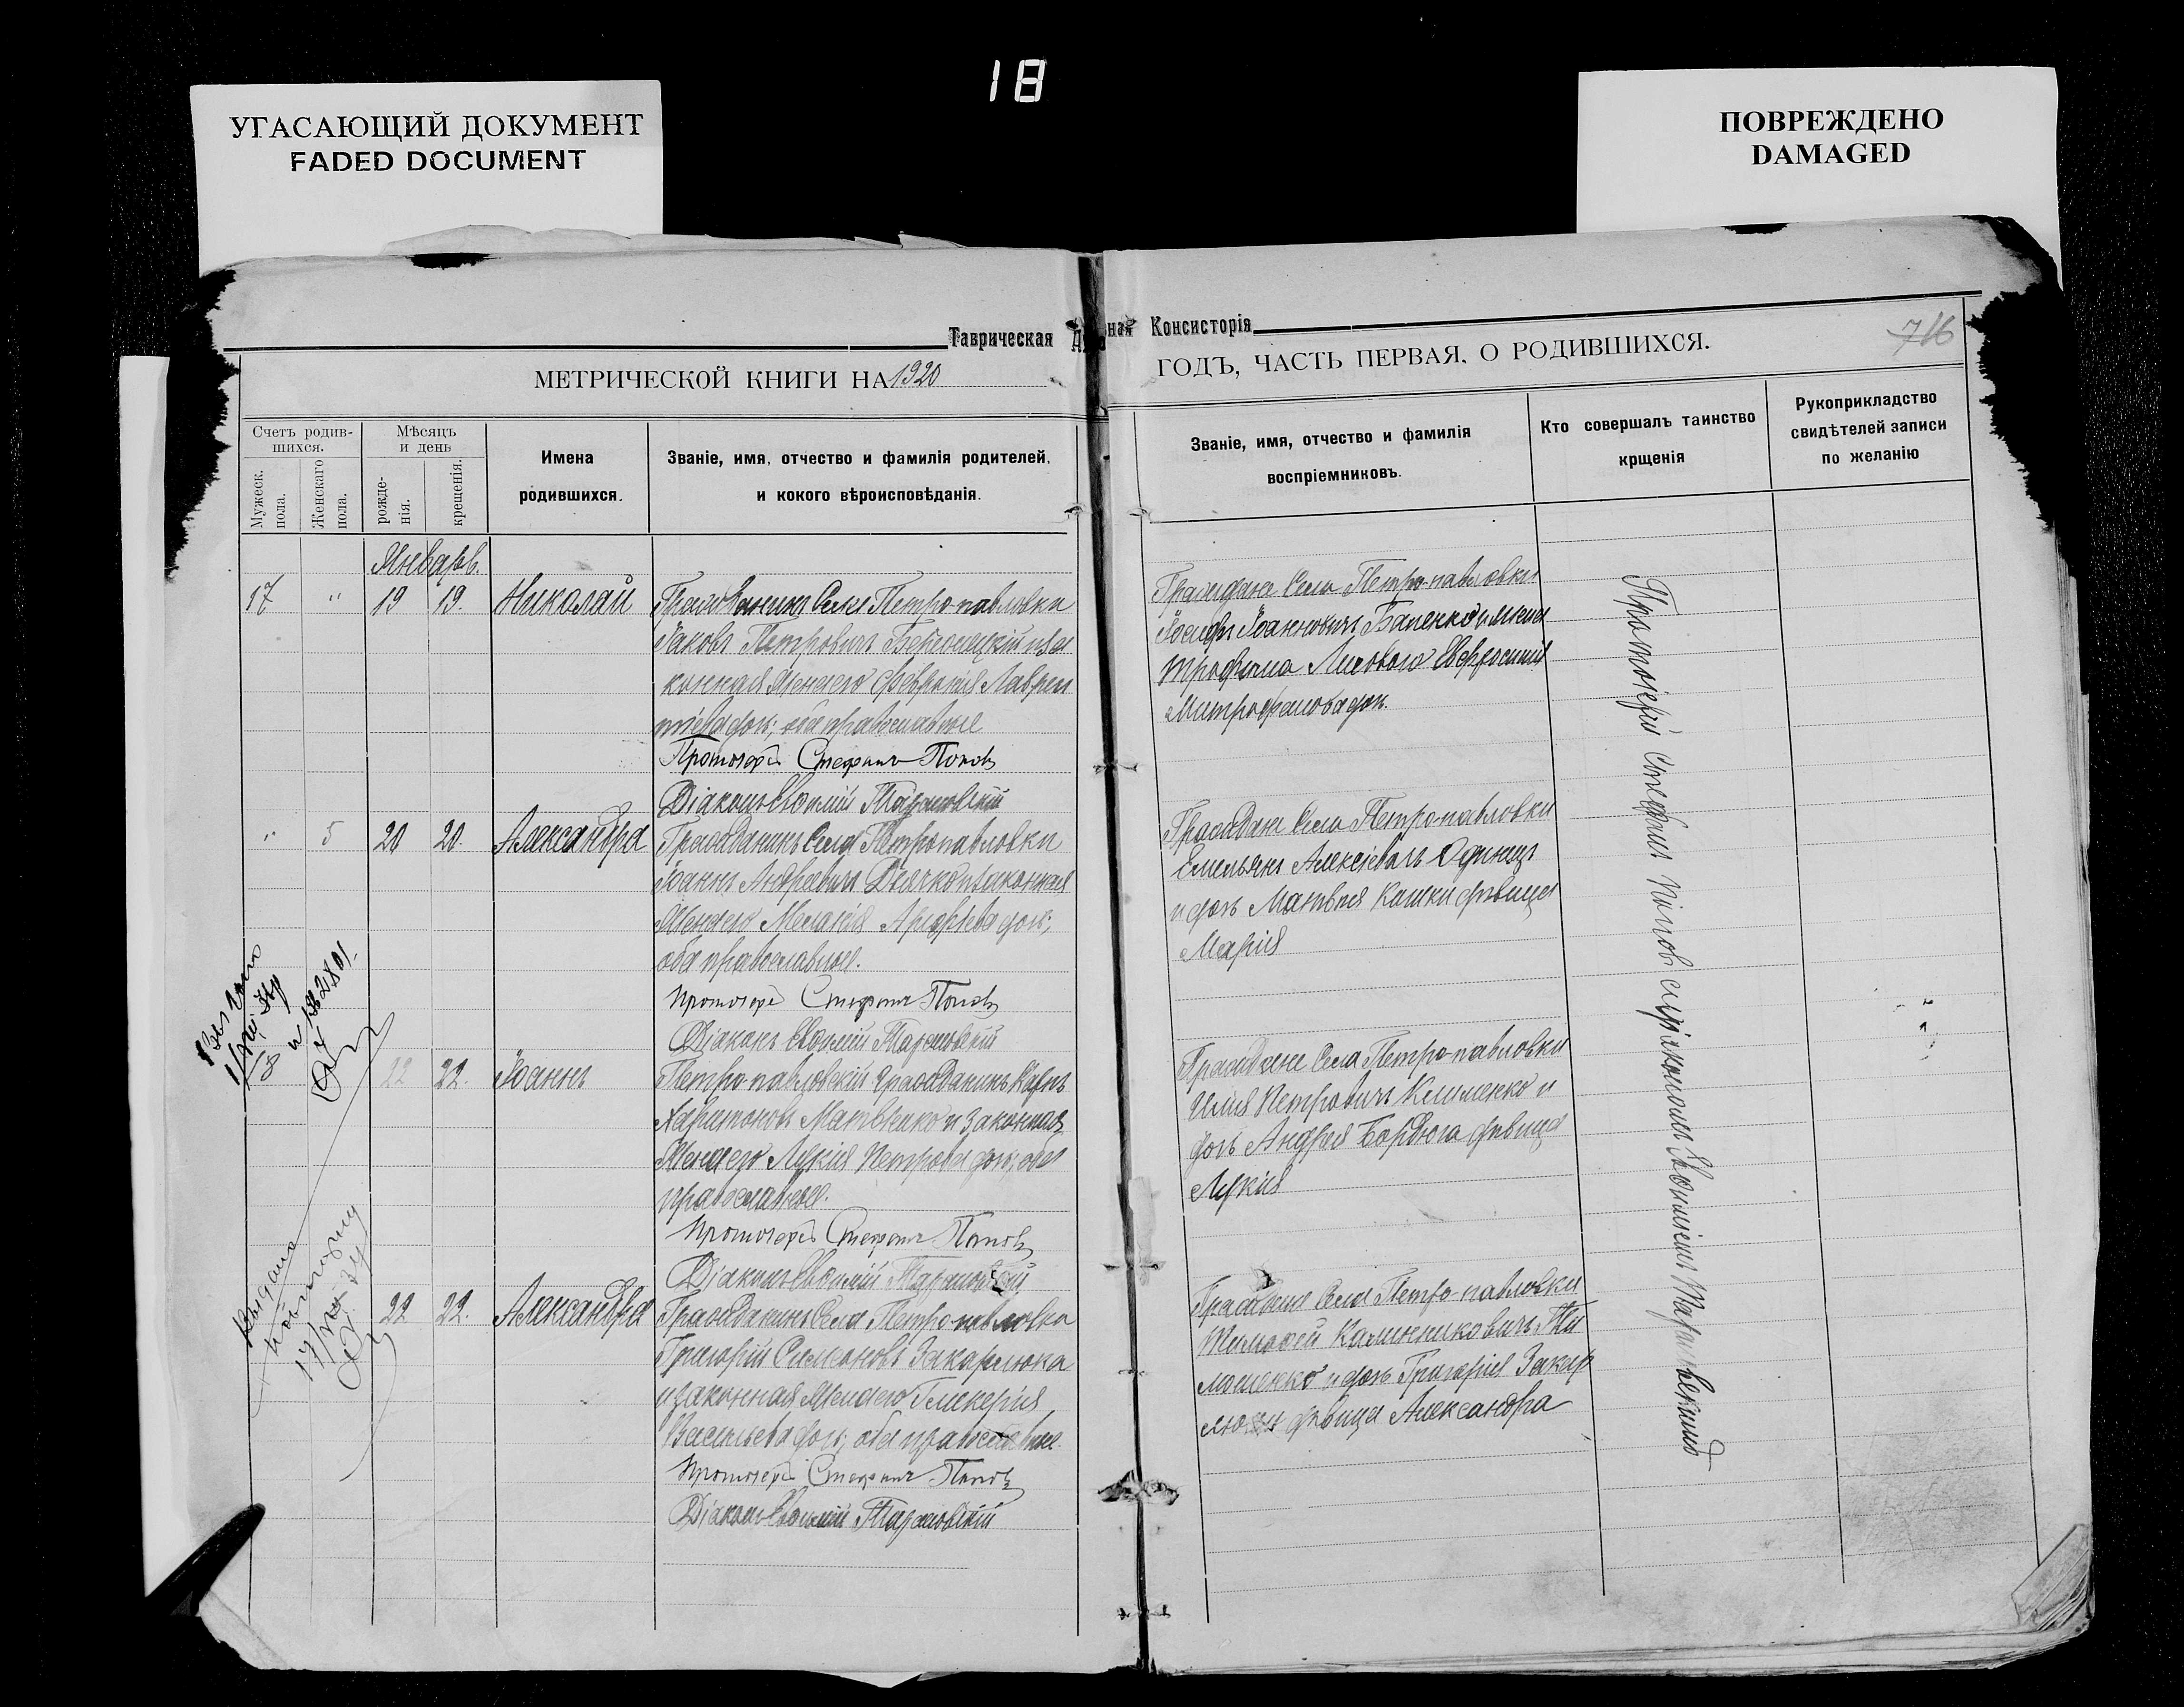 18
УГАСАЮЩИЙ ДОКУМЕНТ
FADED DOCUMENT
ПОВРЕЖДЕНО
DAMAGED
Таврическая
ная Консисторія
МЕТРИЧЕСКОЙ КНИГИ НА 1920
ГОДЪ, ЧАСТЬ ПЕРВАЯ, О РОДИВШИХСЯ.
716
Счетъ родив-
шихся.
Мужеск.
пола.
Женскаго
пола.
Мѣсяцъ
и день
рожде-
нія.
крещенія.
Имена
родившихся.
Званіе, имя, отчество и фамилія родителей,
и кокого вѣроисповѣданія.
Званіе, имя, отчество и фамилія
воспріемниковъ.
Кто совершалъ таинство
крщенія
Рукоприкладство
свидѣтелей записи
по желанію
Январь.
17 " 19 19. Николай
Гражданинъ Села Петро-павловки
Іаковъ Петровичъ и за
конная жена его Феврония Лаврен
тіева дочь; оба православные
Протоіерей Стефанъ Поповъ
Діаконъ Евфимій Тарановскій
Граждане Села Петро-павловки
Іосифъ Іоанновичъ Баценко и жена
Трофима Евфросинія
Митрофанова дочь.
" 5 20 20. Александра
Гражданинъ Села Петропавловки
Іоаннъ Андреевичъ Дьячко и законная
жена его Меланія дочь;
оба православные.
Протоіерей Стефанъ Поповъ
Діаконъ Евфимій Тарановскій
Граждане Села Петро-павловки
Емельянъ Алексіевичъ Одинецъ
и дочь Матвея Кашки дѣвица
Марія
22 22. Іоаннъ
Петро-павловскій гражданинъ Карпъ
Харитоновъ Матвіенко и законная
жена его Лукія Петрова дочь, оба
православные.
Протоіерей Стефанъ Поповъ
Діаконъ Евфимій Тарановскій
Граждане Села Петро-павловки
Илія Петровичъ Клименко и
дочь Андрея Бордюга дѣвица
Лукія
22 22. Александра
Гражданинъ Села Петро-павловка
Григорій Симоновъ Закарлюка
и законная жена его Гликерія
Васильева дочь, оба православные.
Протоіерей Стефанъ Поповъ
Діаконъ Евфимій Тарановскій
Граждане Села Петро-павловки
Тимофей Калинниковичъ Ти
мошенко и дочь Григорія Закар
люки дѣвица Александра
Протоіерей Стефанъ Поповъ съ діакономъ Евфиміемъ Тарановскимъ
Выдана